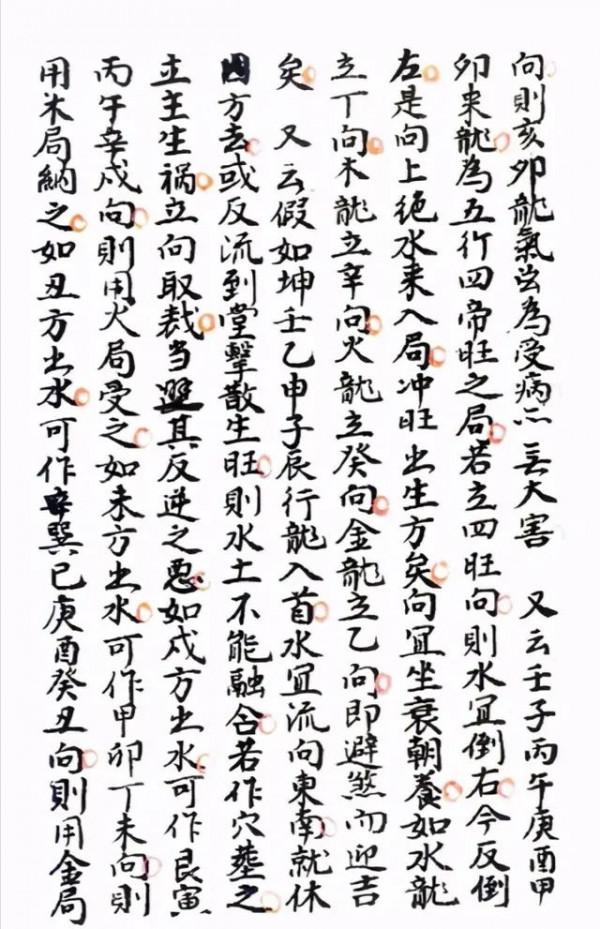 向則亥卯龍氣皆為受病亦無大害 又云壬子丙午庚酉甲
卯来龍為五行四帝旺之局若立四旺向則水宜倒右今反倒
左是向上绝水来入局冲旺出生方矣向宜坐衰朝養如水龍
立丁向木龍立辛向火龍立癸向金龍立乙向即避煞而迎吉
矣 又云假如坤壬乙申子辰行龍入首水宜流向東南就休
囚方去或反流到堂擊散生旺則水土不能融合若作穴塟之
立主生禍立向取裁当避其反逆之悪如戍方出水可作艮寅
丙午辛戍向則用火局受之如未方出水可作甲卯丁未向則
用木局納之如丑方出水可作巽巳庚酉癸丑向則用金局